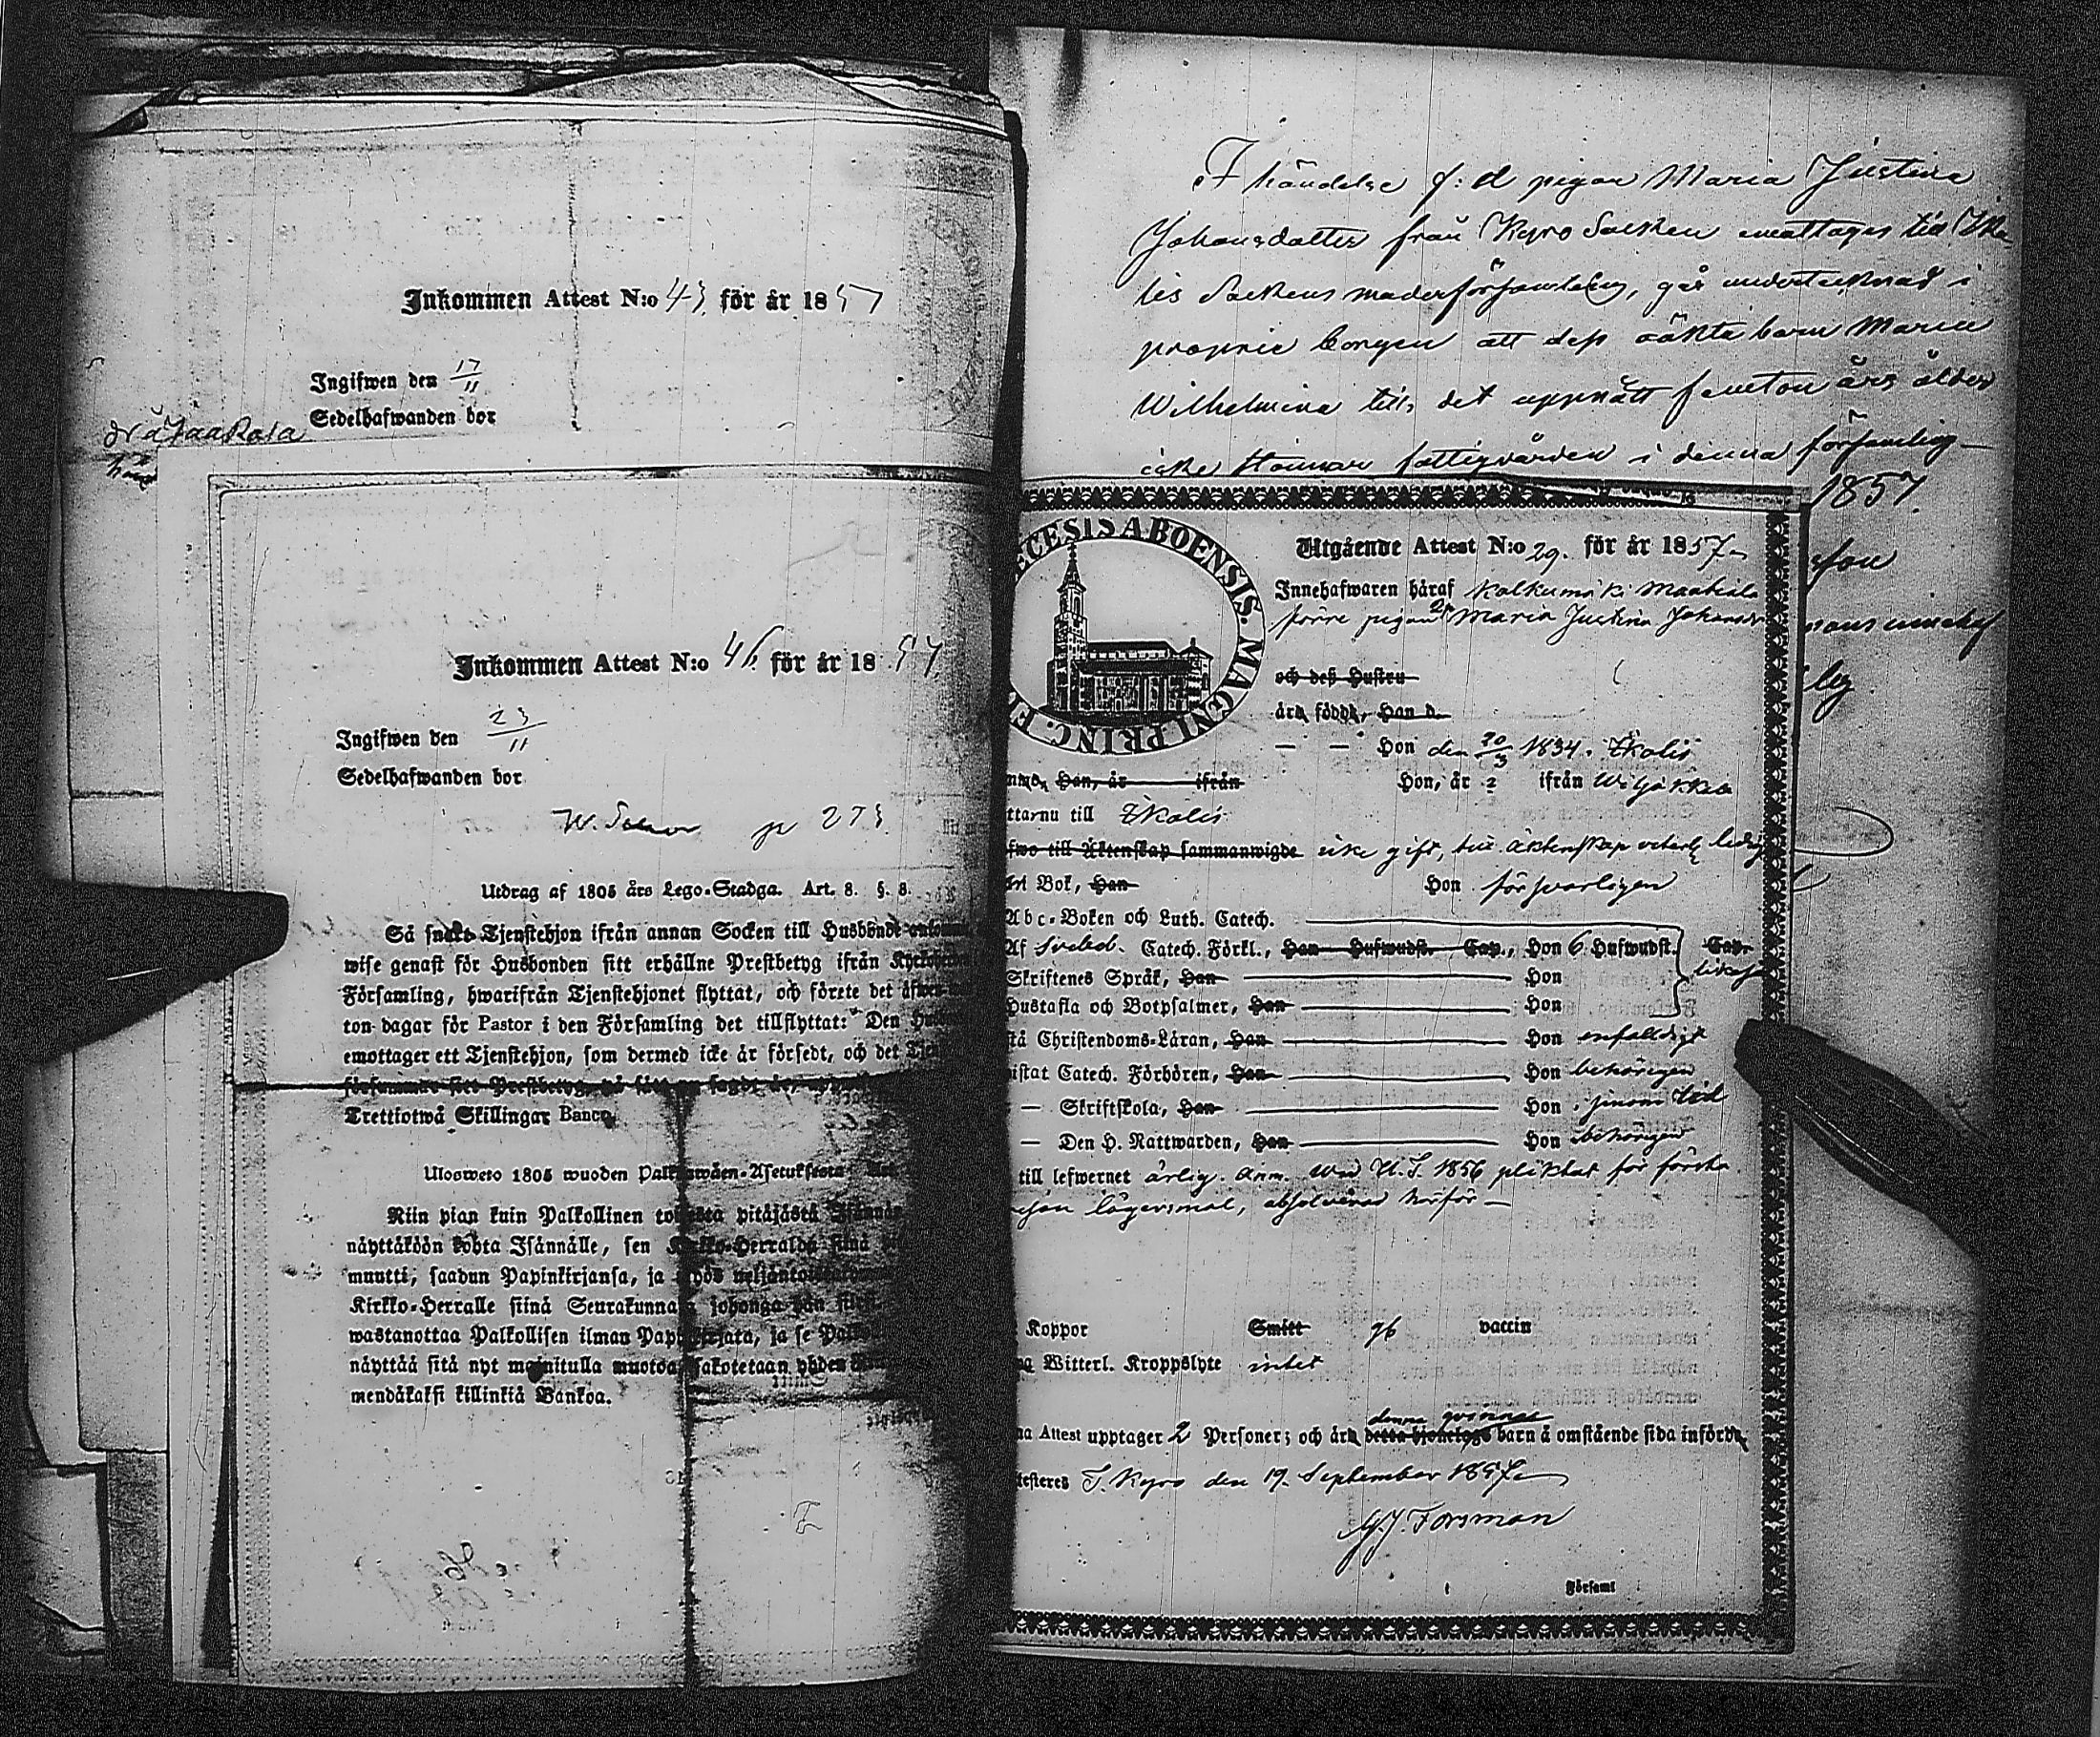 Inkommen Attest N:o 43. för år 1857
Ingifwen den 17/11
Sedelhafwanden bor
Inkommen Attest N:o 46 för år 1857.
Ingifwen den 23/11
Sedelhafwanden bor
W. p 273.
Utdrag af 1805 års Lego-Stadga. Art. 8. §. 8.
Så snart Tjenstehjon ifrån annan Socken till Husbonde
wise genast för Husbonden sitt erhållne Prestbetyg ifrån
Församling, hwarifrån Tjenstehjonet flyttat, och förete det
ton dagar för Pastor i den Församling det tillflyttat: Den
emottager ett Tjenstehjon, som dermed icke är försedt, och det
försummar sitt Prestbetyg, på sätt nu sagdt är,
Trettiotwå Skillingar Banco.
Ulosweto 1805 wuoden Palkollisten-Asetuksesta
Niin pian kuin Palkollinen toisesta pitäjästä
näyttäköön kohta Isännälle, sen Kirkko-Herralda siinä
muutti, saadun Papinkirjansa, ja myös
Kirkko-Herralle siinä Seurakunnasa johonga hän
wastanottaa Palkollisen ilman Papinkirjata, ja se
näyttää sitä nyt mainitulla muotoa sakotetaan yhden
mendäkaksi killinkiä Bankoa.
I händelse f: d pigan Maria Justina
Johansdotter från Kyro Socken emottages till Ika
lis Sockens moderförsamling, går undertecknad i
proprie borgen att dess oäkta barn Maria
Wilhelmina till det uppnått femton års ålder
icke kommer fattigvården i denna församling
1857.
ECESIS ABOENSIS. MAGNI PRINC. F
Utgående Attest N:o 29. för år 1857
Innehafwaren häraf Kalkumäki Maatiala
förre pigan Maria Justina Johansdr
och deß Hustru
ära födde, Han d.
— — Hon den 20/3 1834. Ikalis
Han, år ifrån Hon, år ifrån Wiljakkala
ttarnu till Ikalis
fwo till Äktenskap sammanwigde icke gift, till äktenskap ledig
Bok, Han Hon försvarligen
Abc-Boken och Luth. Catech.
Af Svebel. Catech. Förkl., Han Hufwudst. Cap., Hon 6 Hufwudst. Cap.
Skriftenes Språk, Han Hon
Hustafla och Botpsalmer, Han Hon
tå Christendoms-Läran, Han Hon enfaldigt
istat Catech. Förhören, Han Hon behörigen
— Skriftskola, Han Hon sinom tid
— Den H. Nattwarden, Han Hon behörigen
till lefwernet ärlig. Anm. wid U. T. 1856 pliktat för första
resan lägersmål, absolverad härför —
Koppor Smitt gb vaccin
Witterl. Kroppslyte intet
na Attest upptager 2 Personer; och är denna qvinnas detta hjonelags barn å omstående sida införde
testeres T. Kyro den 19. September 1857
M.J. Forsman
Församl